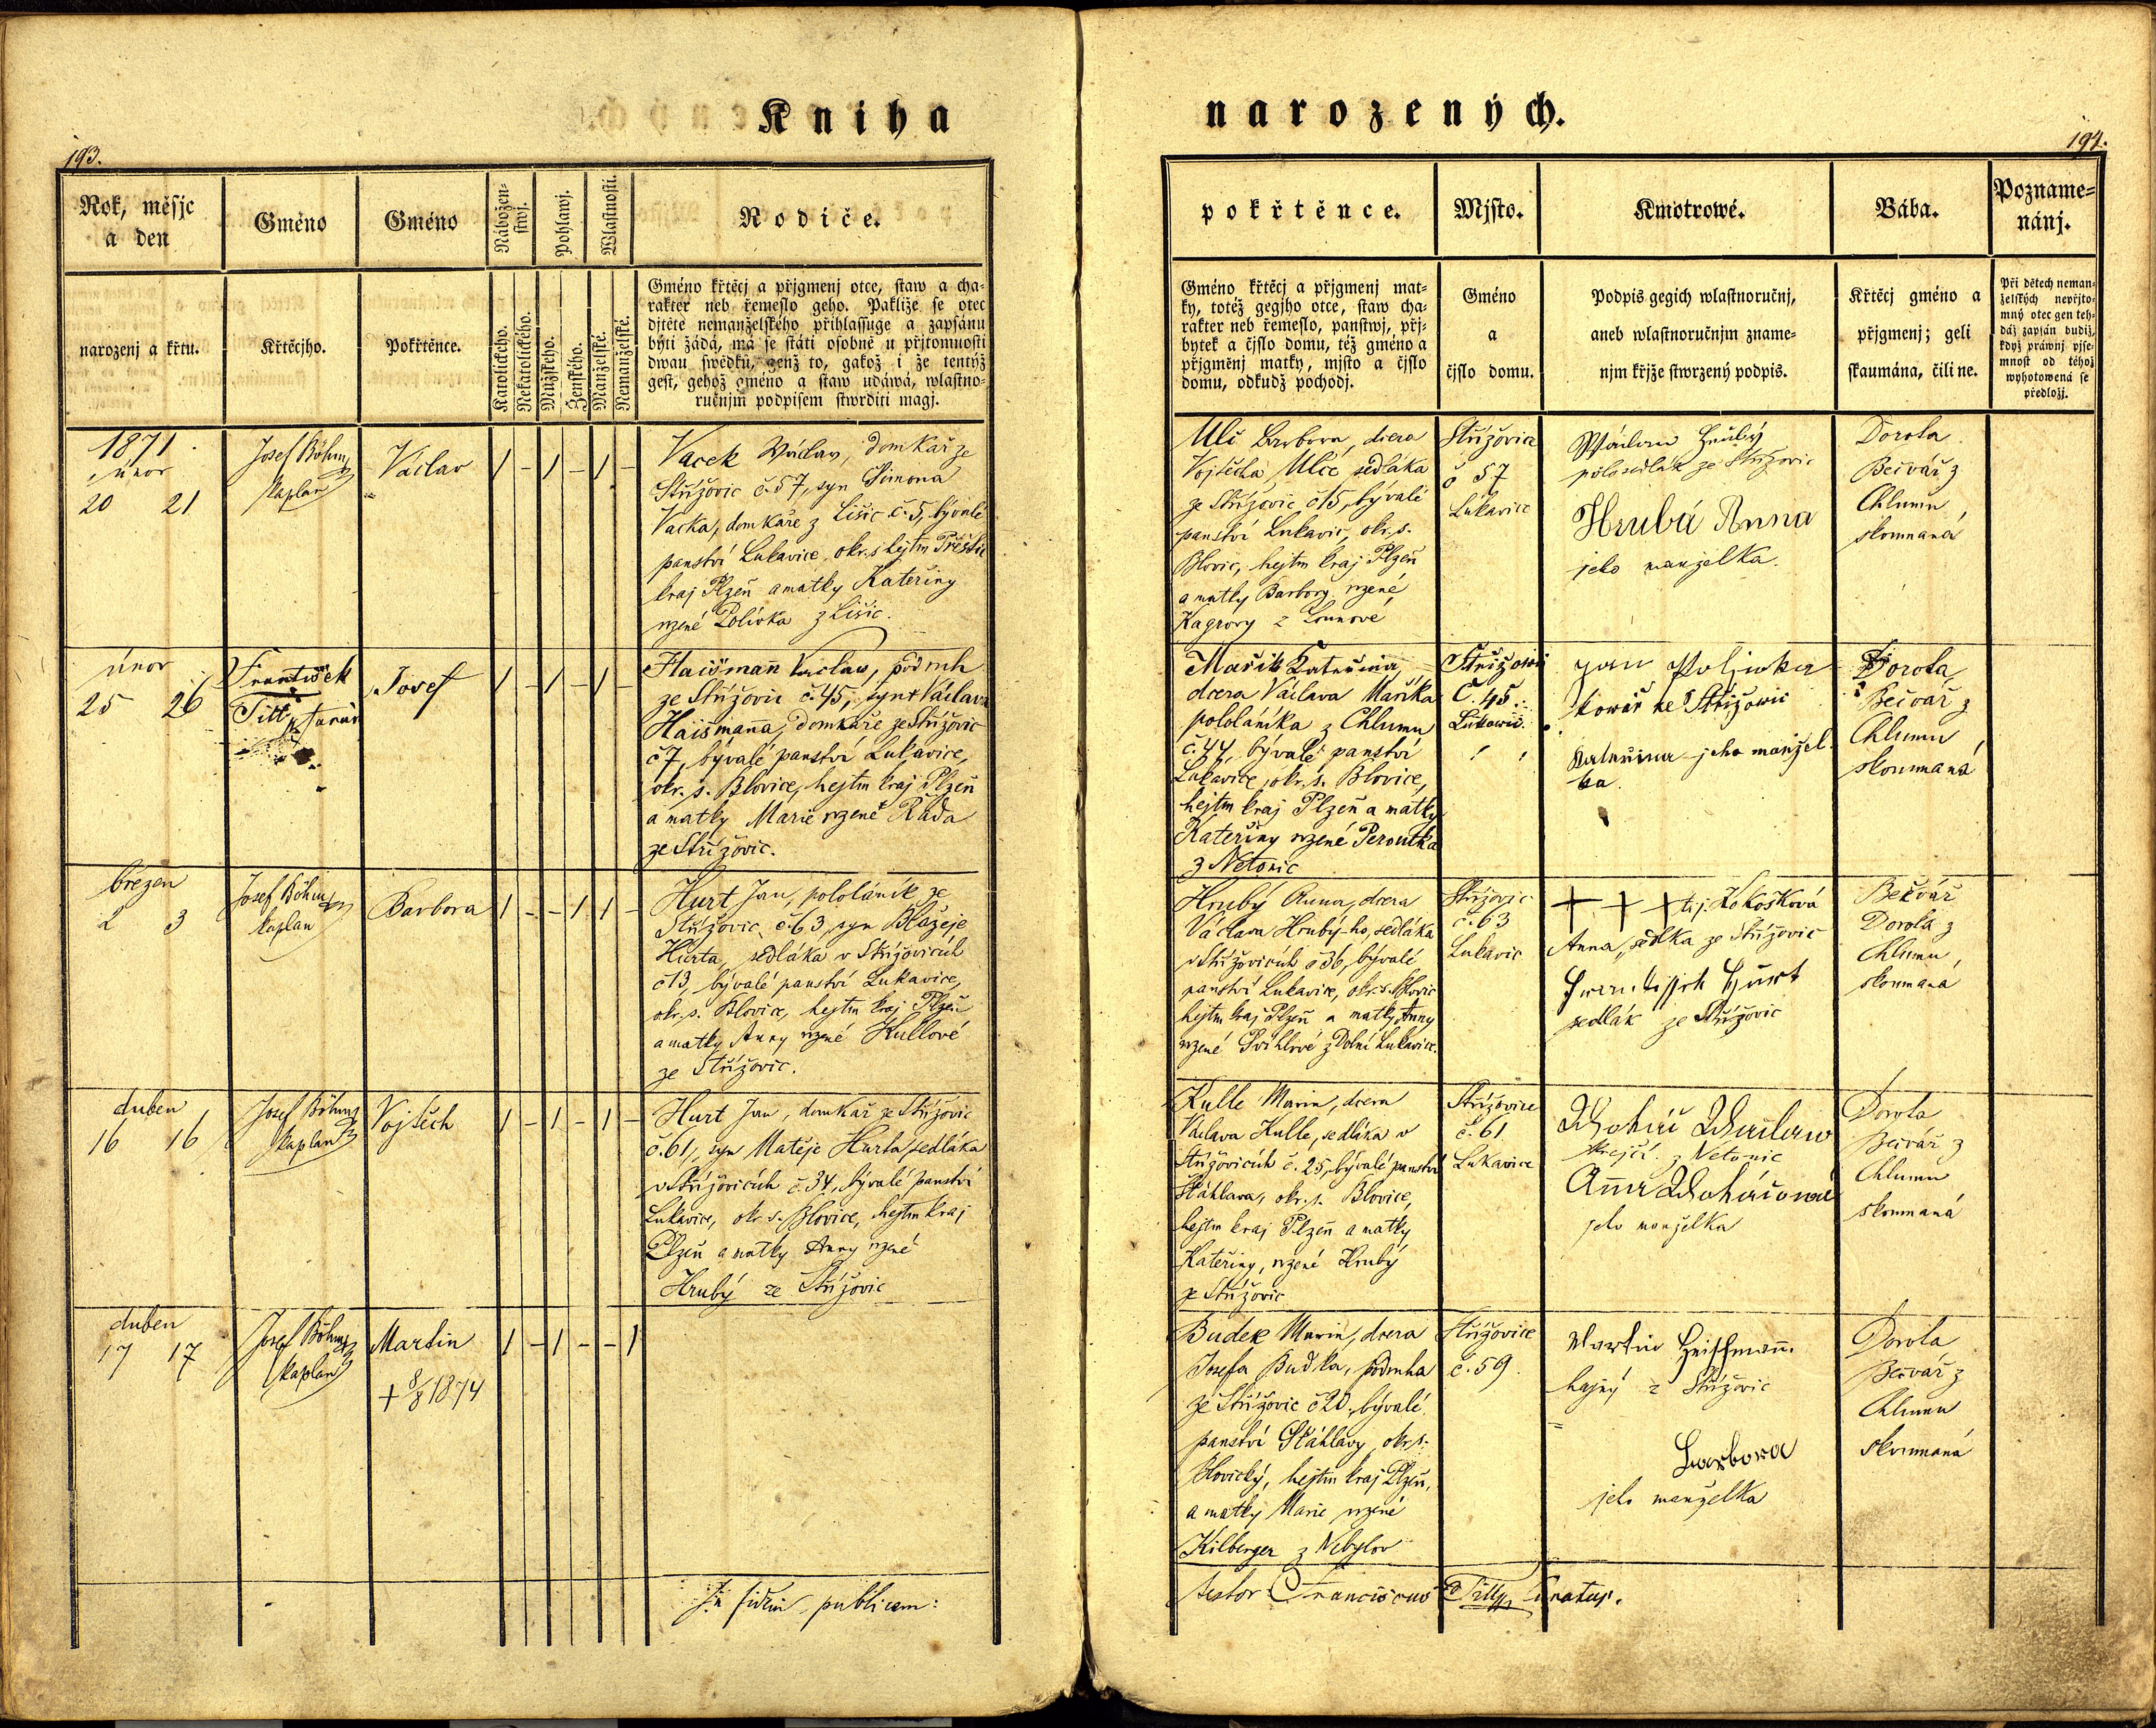 Kniha
193.
Rok, měsjc
a den
Gméno
Gméno
Nábožen-
stwj.
Pohlawj.
Wlastnosti.
Rodiče.
narozenj a křtu.
Křtěcjho.
Pokřtěnce.
Katolického.
Nekatolického.
Mužského.
Ženského.
Manželské.
Nemanželské.
Gméno křtěcj a přjgmenj otce, staw a cha-
rakter neb řemeslo geho. Pakliže se otec
djtěte nemanželského přihlassuge a zapsánu
býti žádá, má se státi osobně u přjtomnosti
dwau swědků, genž to, gakož i že tentýž
gest, gehož gméno a staw udáwá, wlastno-
ručnjm podpisem stwrditi magj.
1871.
únor
20 21
Josef Böhm
kaplan
Václav
1 – 1 – 1 –
Vacek Václav, domkář ze
Střížovic č. 57, syn Šimona
Vacka, domkáře z Lišic č. 5, bývalé
panství Lukavice, okr. s hejtm Přeštic
kraj Plzeň a matky Kateřiny
rzené Polívka z Lišic.
únor
25 26
František
Tittl, farář
Josef
1 – 1 – 1 –
Haišman Václav, podruh
ze Střížovic č. 45, syn † Václava
Haišmana, domkáře ze Střížovic
č 7, bývalé panství Lukavice,
okr. s. Blovice, hejtm kraj Plzeň
a matky Marie rzené Rada
ze Střížovic.
březen
2 3
Josef Böhm
kaplan
Barbora
1 – – 1 1 –
Hurt Jan, pololáník ze
Střížovic č. 63, syn Blažeje
Hurta, sedláka v Střížovicích
č 13, bývalé panství Lukavice,
okr. s. Blovice, hejtm kraj Plzeň
a matky Anny rzené Kullové
ze Střížovic.
duben
16 16
Josef Böhm
kaplan
Vojtěch
1 – 1 – 1 –
Hurt Jan, domkář ze Střížovic
č. 61, syn Matěje Hurta, sedláka
v Střížovicích č. 34, bývalé panství
Lukavice, okr. s. Blovice, hejtm kraj
Plzeň a matky Anny rzené
Hrubý ze Střížovic
duben
17 17
Josef Böhm
kaplan
Martin
+ 8/8 1874
1 – 1 – – 1
In fidem publicam:
narozených.
194.
pokřtěnce.
Mjsto.
Kmotrowé.
Bába.
Pozname-
nánj.
Gméno křtěcj a přjgmenj mat-
ky, totéž gegjho otce, staw cha-
rakter neb řemeslo, panstwj, přj-
bytek a čjslo domu, též gméno a
přjgměnj matky, mjsto a čjslo
domu, odkudž pocházj.
Gméno
a
čjslo domu.
Podpis gegich wlastnoručnj,
aneb wlastnoručnjm zname-
njm křjže stwrzený podpis.
Křtěcj gméno a
přjgmenj; geli
skaumána, čili ne.
Při dětech neman-
želských nepřjto-
mný otec gen teh-
dáž zapsán budiž,
když práwnj pjse-
mnost od téhož
wyhotowená se
předložj.
Ulč Barbora, dcera
Vojtěcha Ulče, sedláka
ze Střížovic č 15, bývalé
panství Lukavic, okr. s.
Blovic, hejtm kraj Plzeň
a matky Barbory rzené
Kagrový z Lounové
Střížovice
č 57
Lukavice
Wáclaw Hrubý
polosedlák ze Střížovic
Hrubá Anna
jeho manželka.
Dorota
Bečvář z
Chlumu
skoumaná
Mařík Kateřina,
dcera Václava Maříka
pololáníka z Chlumu
č. 44, bývalé panství
Lukavice, okr. s. Blovice,
hejtm kraj Plzeň a matky
Kateřiny rzené Peroutka
z Netonic
Střížowic
Č. 45.
Lukowic.
Jan Poljwka
kowář ze Střížowic
Kateřina jeho manžel-
ka.
Dorota
Bečvář z
Chlumu
skoumaná
Hrubý Anna, dcera
Václava Hrubý-ho, sedláka
v Střížovicích č 36, bývalé
panství Lukavice, okr. s. Blovic
hejtm kraj Plzeň a matky Anny
rzené Švihlové z Dolní Lukavice.
Střížovic
č. 63
Lukavic
+ + + t. j. Kokošková
Anna, sedlka ze Střížovic
Frantissek Hurt
sedlák ze Střížovic
Bečvář
Dorota z
Chlumu,
skoumaná
Kulle Marie, dcera
Václava Kulle, sedláka v
Střížovicích č. 25, bývalé panství
Šťáhlava, okr. s. Blovice,
hejtm kraj Plzeň a matky
Kateřiny, rzené Hrubý
ze Střížovic
Střížovice
č. 61
Lukavice
krejčí z Netonic
jeho manželka
Dorota
Bečvář z
Chlumu
skoumaná
Budek Marie, dcera
Josefa Budka, podruha
ze Střížovic č 20, bývalé
panství Šťáhlavy, okr. s.
Blovický, hejtm kraj Plzeň,
a matky Marie rzené
Kilberger z Nebylov
Střížovice
č. 59.
Martin Heissmann
hajný z Střížovic
Barbora
jeho manželka
Dorota
Bečvář z
Chlumu
skoumaná
testor Franciscus Tittl, curatus.